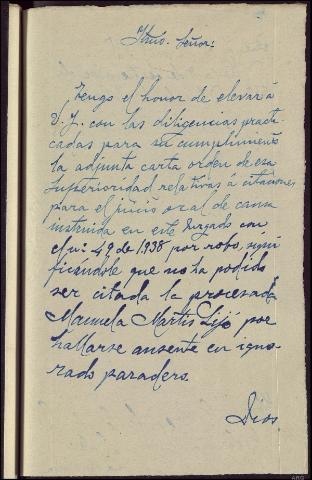 Iltmo. Señor:
Tengo el honor de elevar a
V.I. con las diligencias practi-
cadas para su cumplimiento
la adjunta carta orden de esa
Superioridad relativas á citaciones
para el juicio oral de causa
instruida en este Juzgado con
el nº 49 de 1938 por robo, signi
ficándole que no ha podido
ser citada la procesada
Manuela Martis Lijó por
hallarse ausente en igno-
rado paradero.
Dios